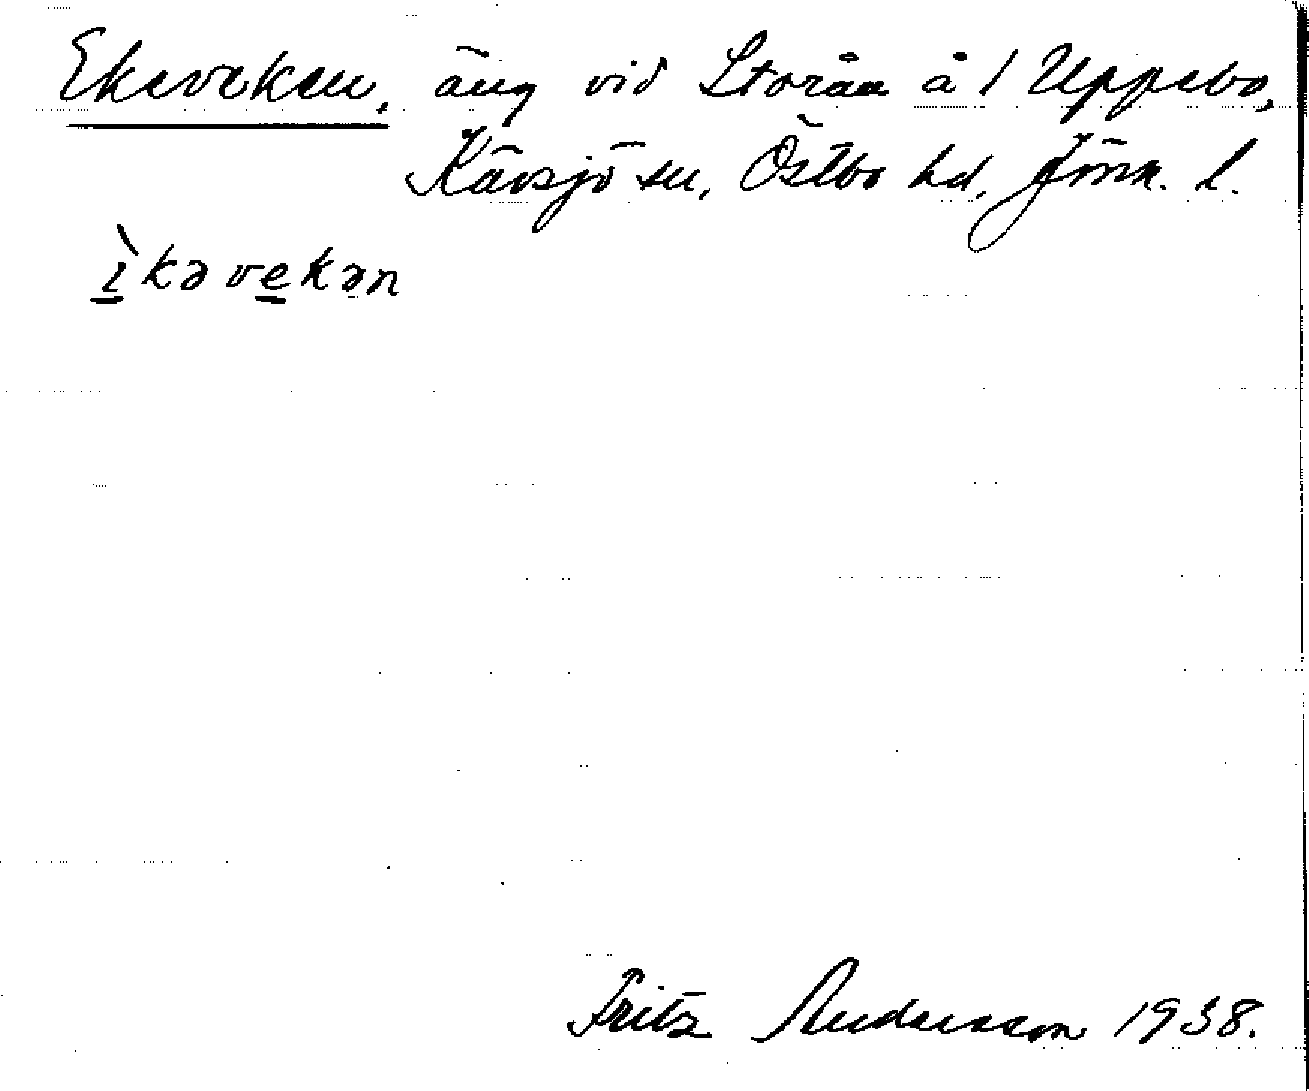 Ekavekan, äng vid Storån å 1 Uppebo,
Kävsjö sn, Östbo hd, Jönk. l.
ìkəvekən
Fritz Andersson 1938.